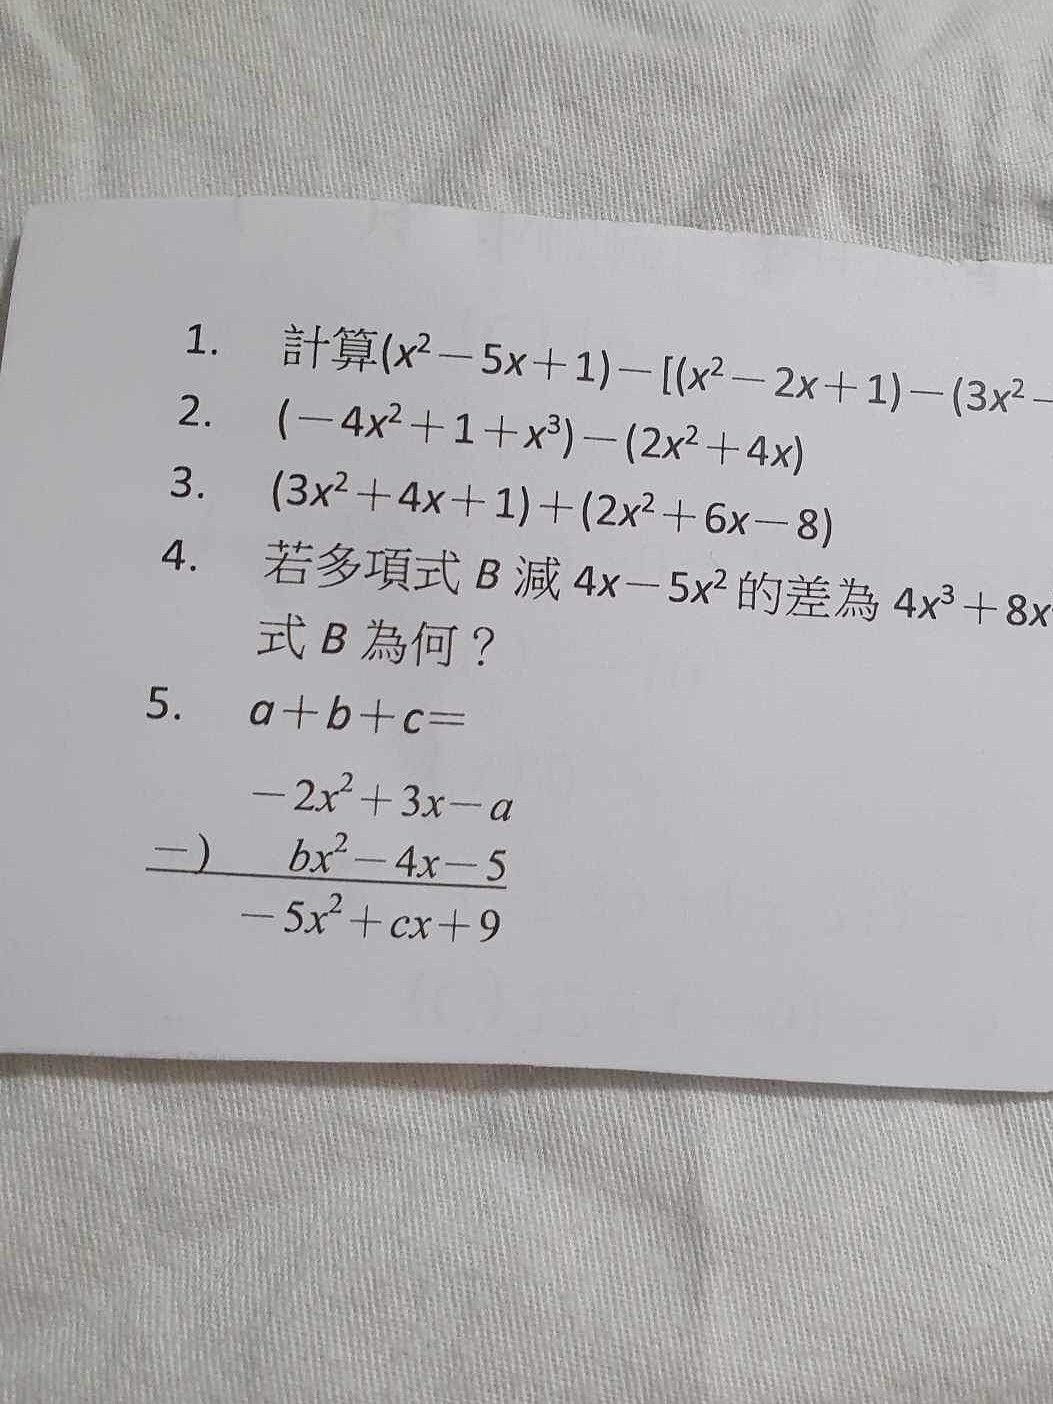 1. 計算(x²－5x＋1)－[(x²－2x＋1)－(3x²－
2. (－4x²＋1＋x³)－(2x²＋4x)
3. (3x²＋4x＋1)＋(2x²＋6x－8)
4. 若多項式 B 減 4x－5x² 的差為 4x³＋8x
式 B 為何？
5. a＋b＋c＝
－2x²＋3x－a
－) bx²－4x－5
－5x²＋cx＋9